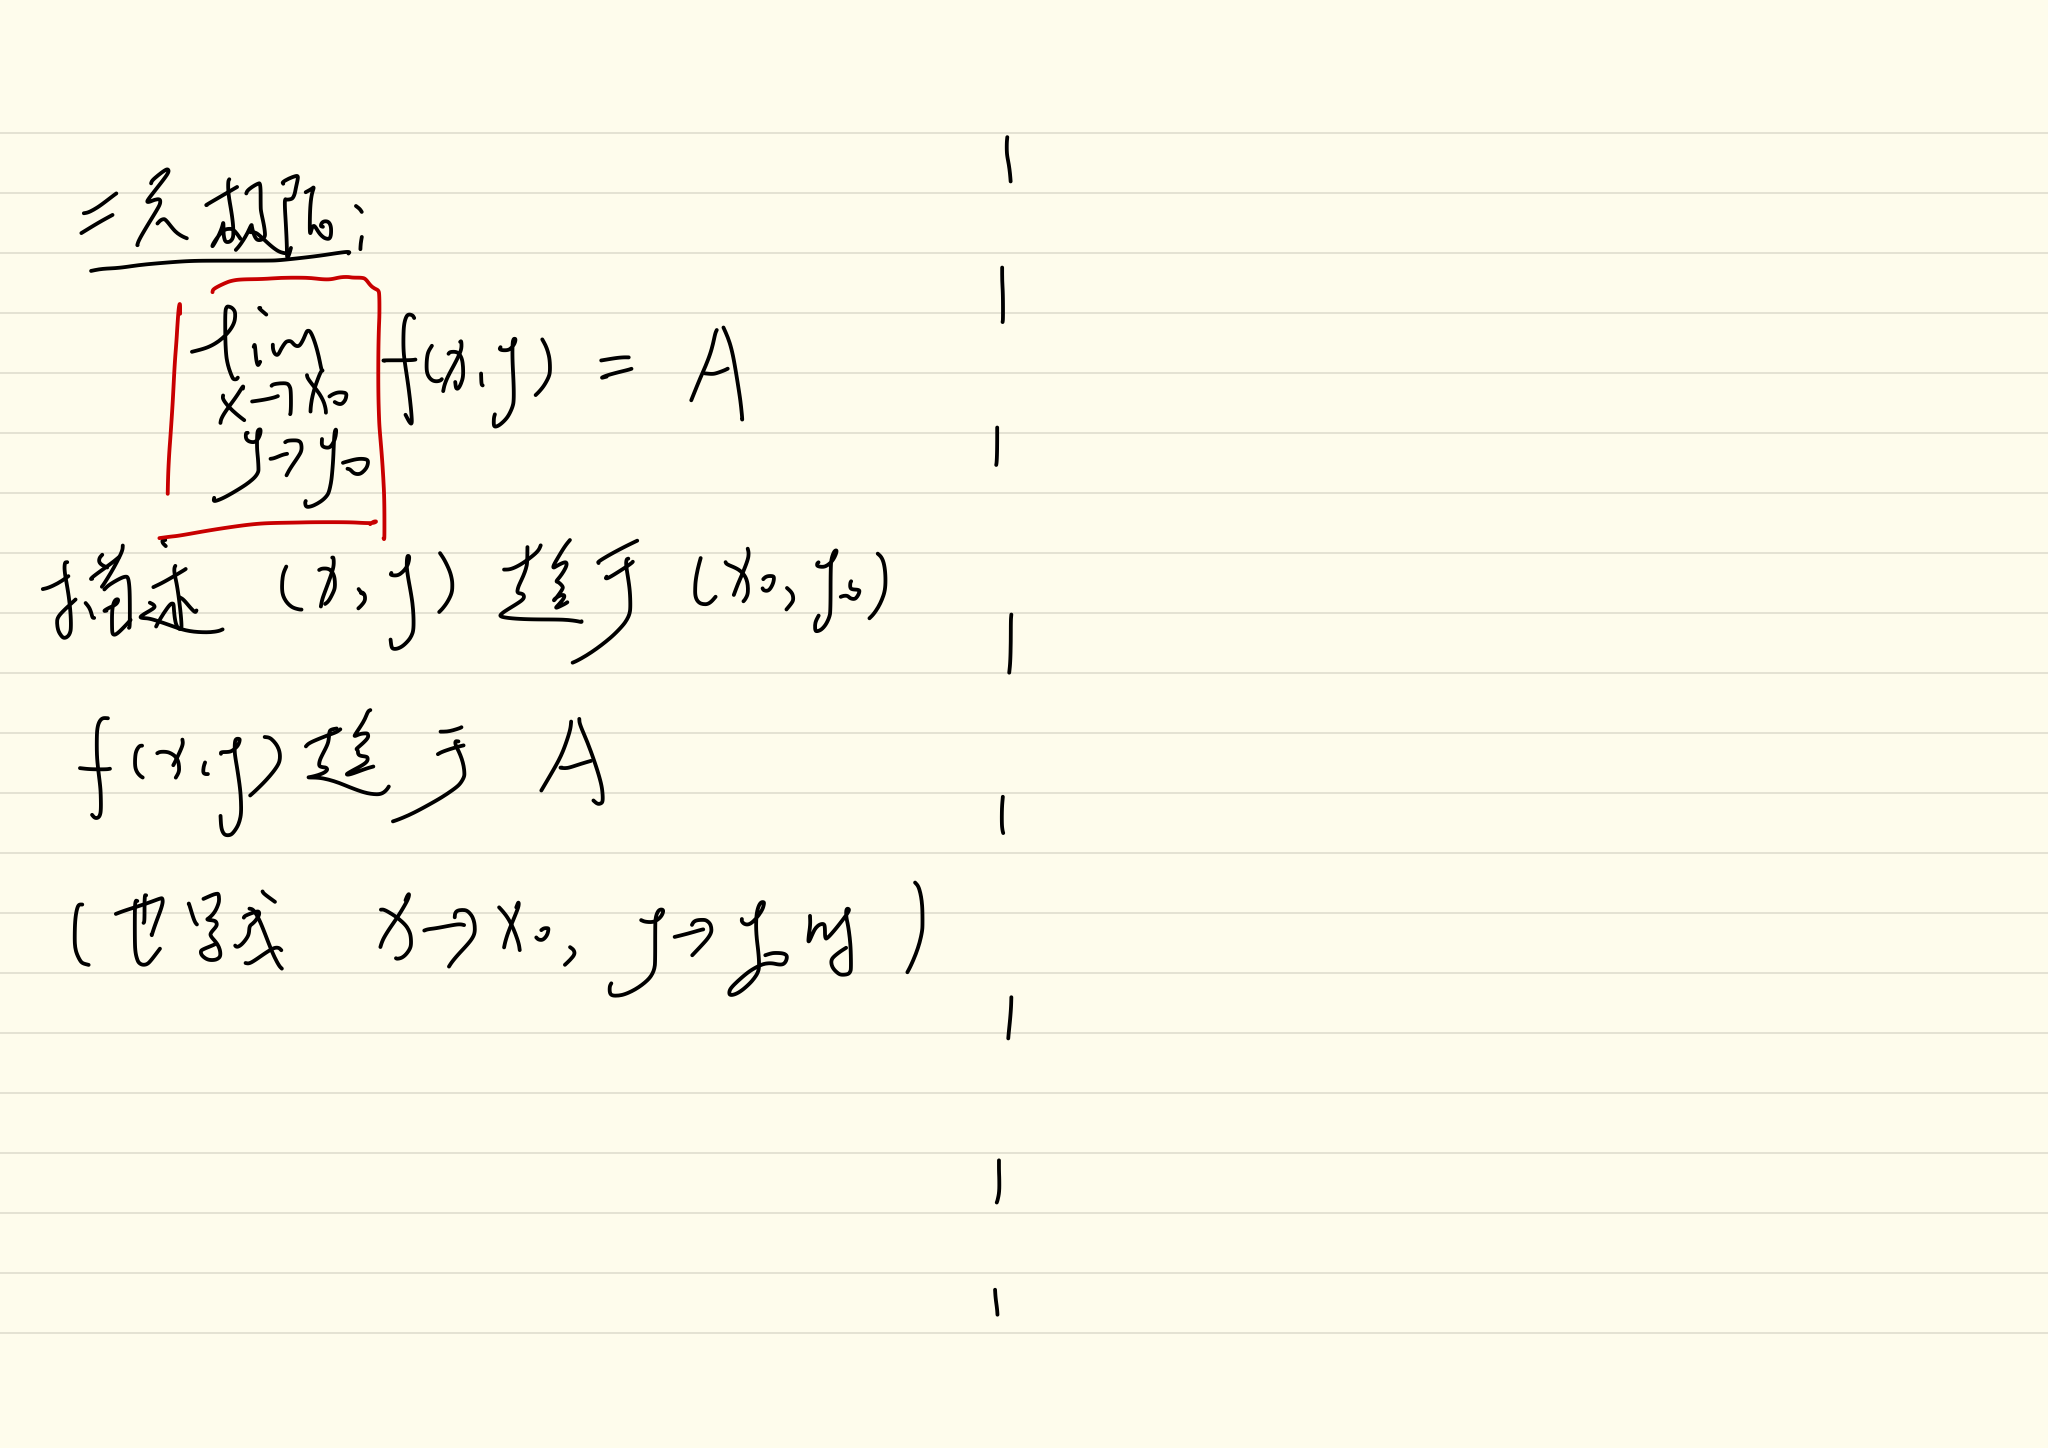 二元极限:
lim f(x,y) = A
x→x₀
y→y₀
描述 (x,y) 趋于 (x₀,y₀)
f(x,y)趋于 A
(也写成 x→x₀, y→y₀ 时)